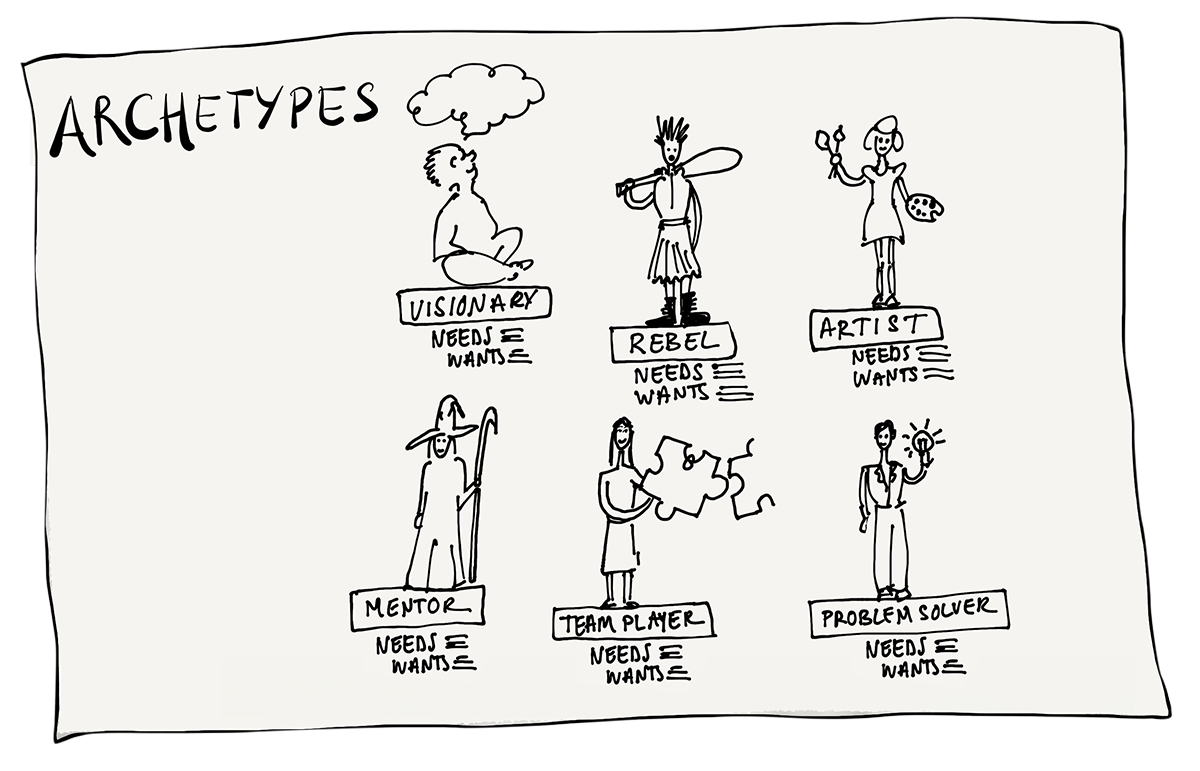 ARCHETYPES
VISIONARY
NEEDS
WANTS
REBEL
NEEDS
WANTS
ARTIST
NEEDS
WANTS
MENTOR
NEEDS
WANTS
TEAM PLAYER
NEEDS
WANTS
PROBLEM SOLVER
NEEDS
WANTS